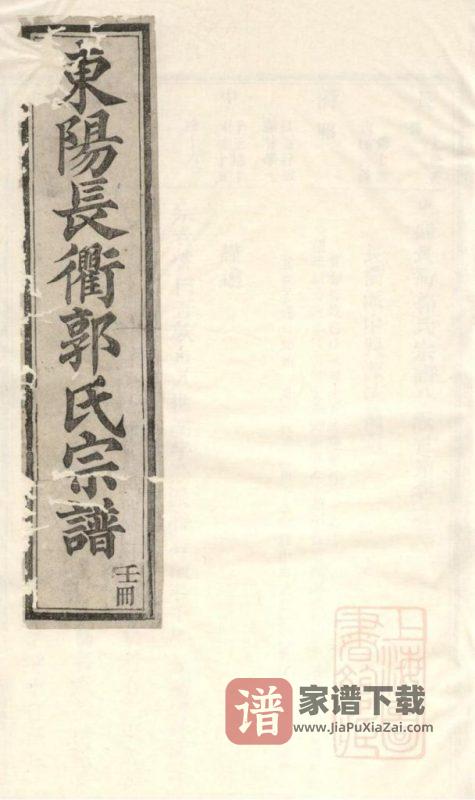 東陽長衢郭氏宗譜
壬冊
上海圖
書館藏
谱 家谱下载
www.JiaPuXiaZai.com